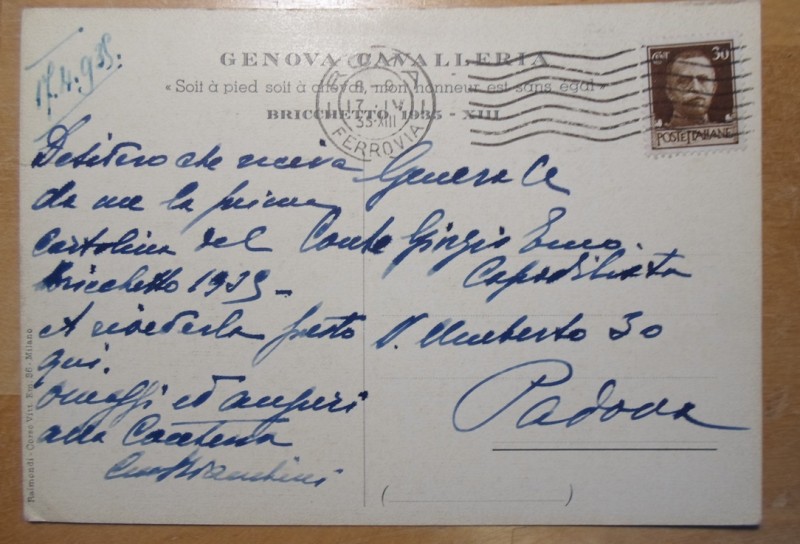 17.4.935.
GENOVA CAVALLERIA
« Soit à pied soit à cheval, mon honneur est sans égal »
BRICCHETTO 1935 - XIII
ROMA
17 · IV
35·XIII
FERROVIA
30
POSTE ITALIANE
Desidero che riceva
da me la prima
Cartolina del
Bricchetto 1935 -
A rivederla presto
qui.
Omaggi ed auguri
alla Contessa
Bianchini
Generale
Conte Giorgio Emo
Capodilista
V. Umberto 30
Padova
( )
Raimondi - Corso Vitt. Em. 26 - Milano